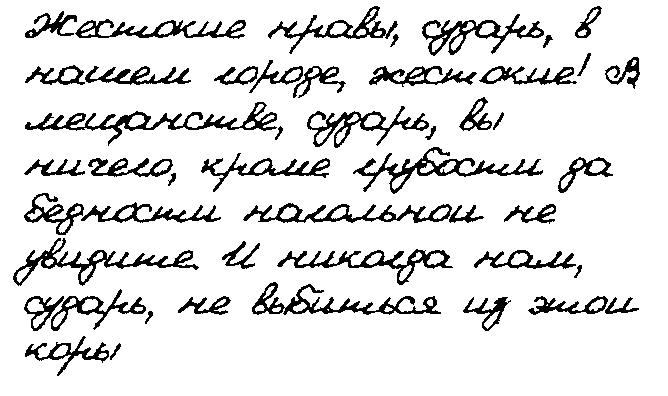 Жестокие нравы, сударь, в
нашем городе, жестокие! В
мещанстве, сударь, вы
ничего, кроме грубости да
бедности нагольной не
увидите. И никогда нам,
сударь, не выбиться из этой
коры